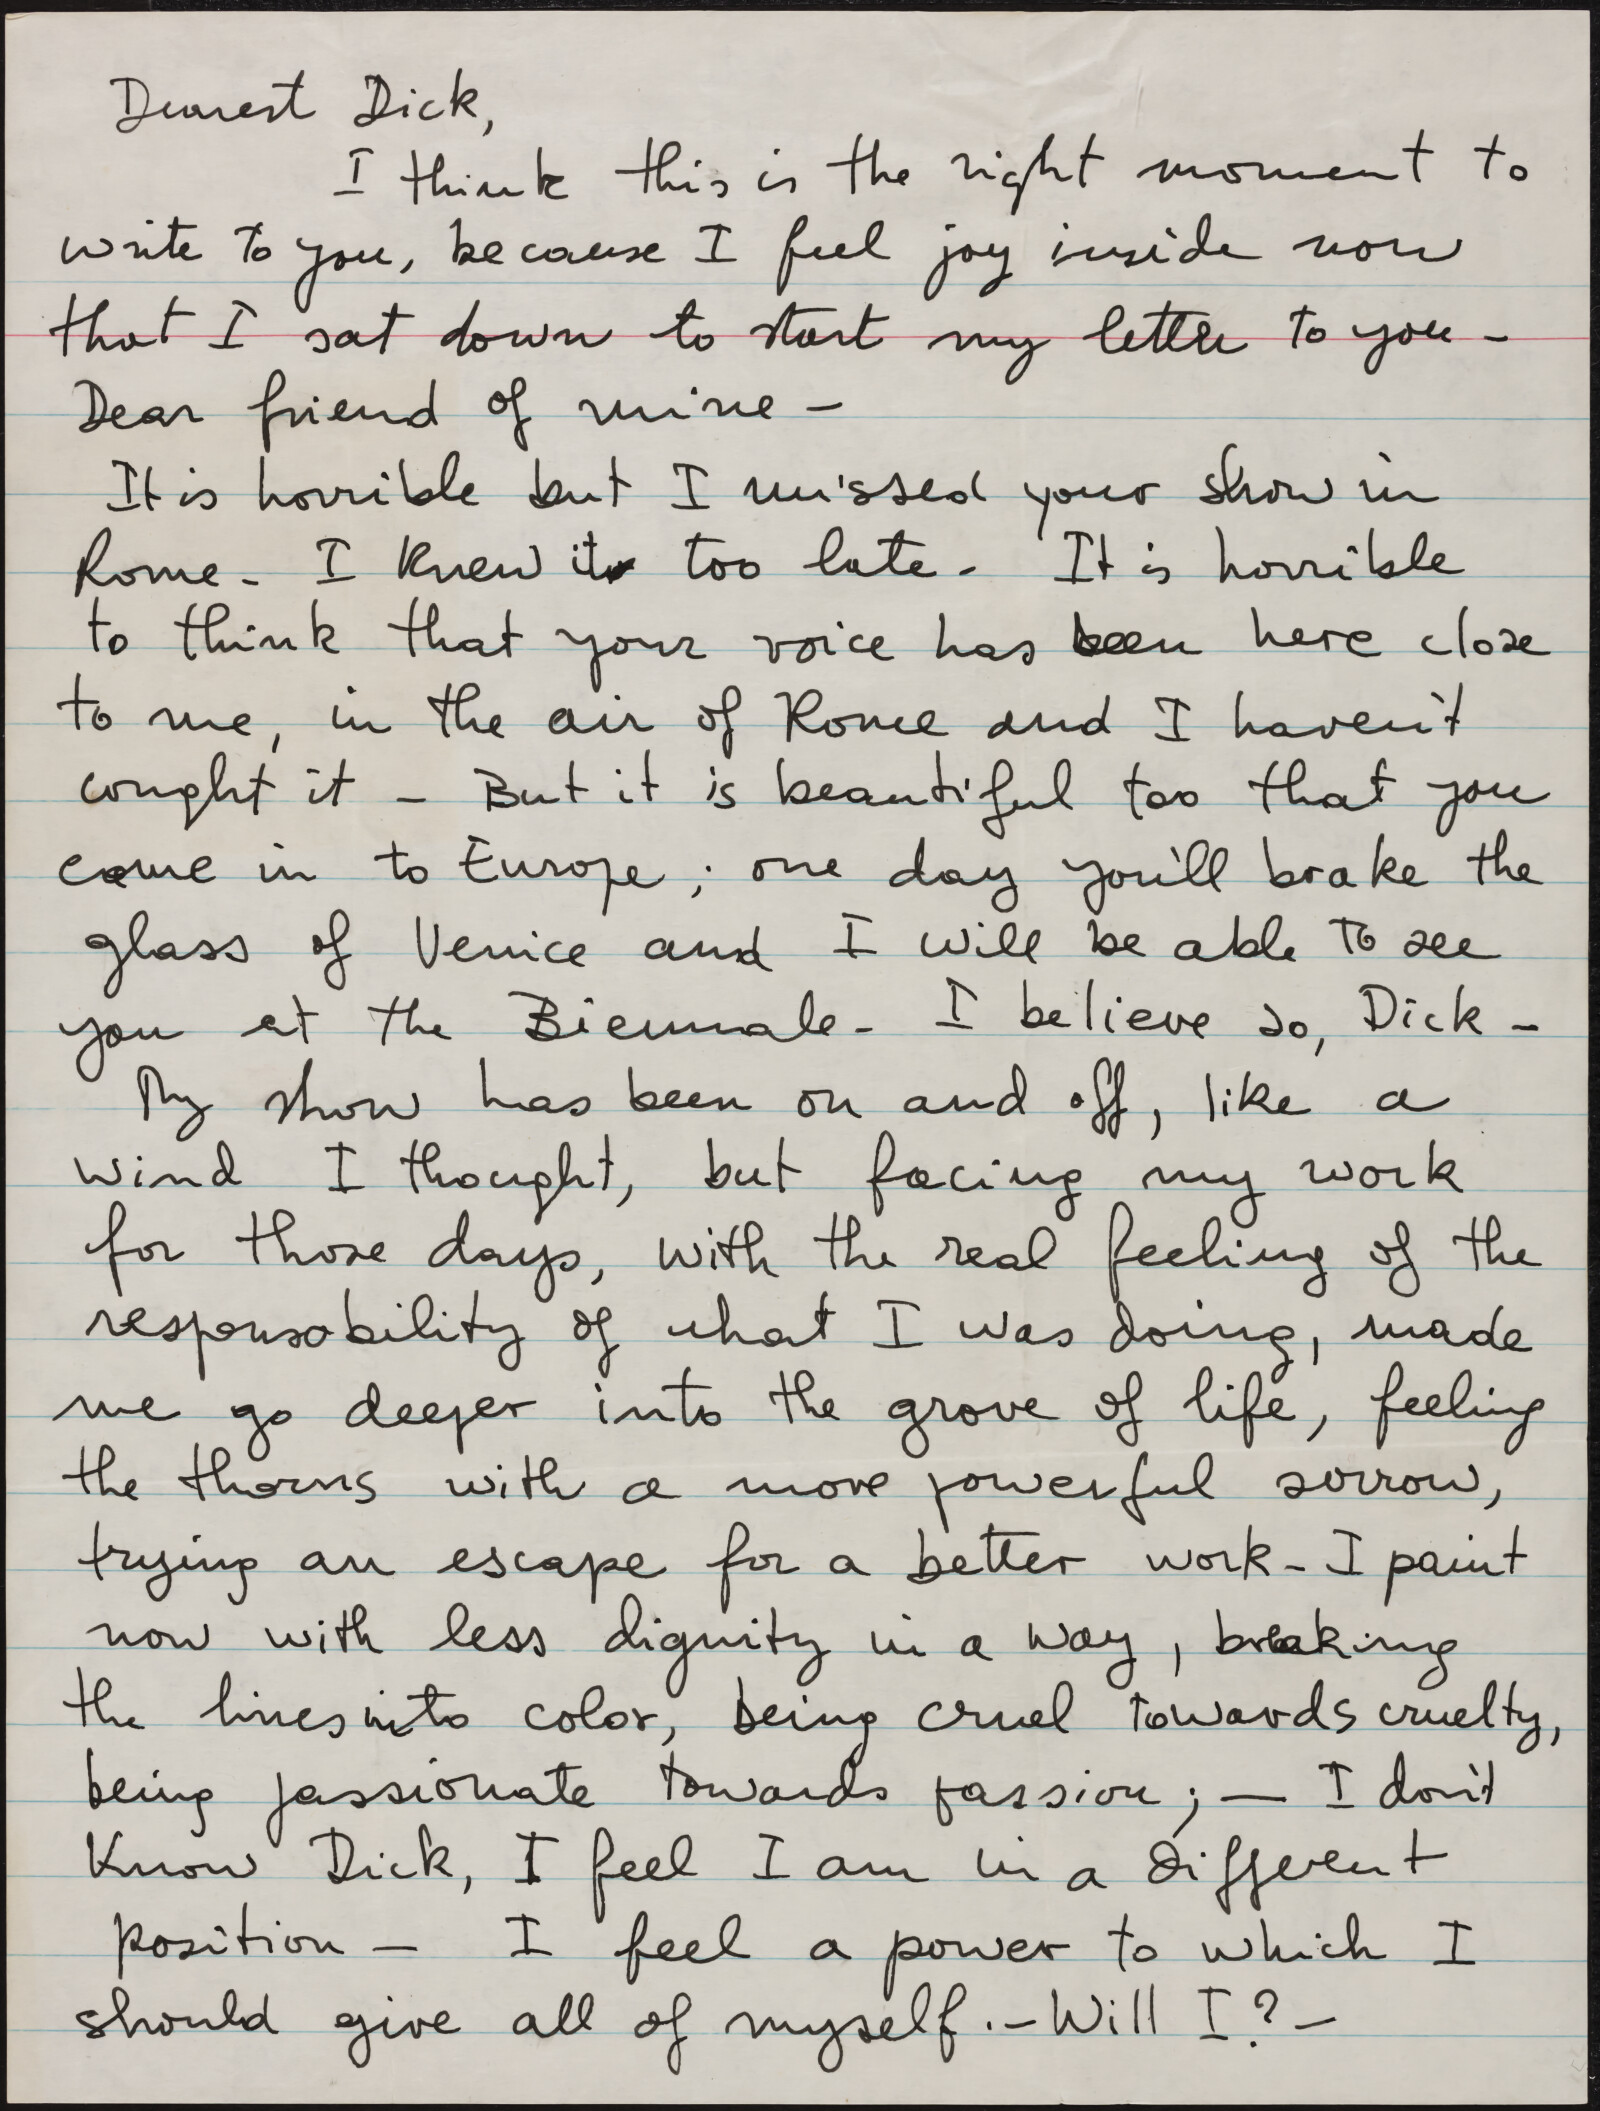 Dearest Dick,
I think this is the right moment to
write to you, because I feel joy inside now
that I sat down to start my letter to you -
Dear friend of mine -
It is horrible but I missed your show in
Rome - I knew it too late - It is horrible
to think that your voice has been here close
to me, in the air of Rome and I haven't
cought it - But it is beautiful too that you
came in to Europe ; one day you'll brake the
glass of Venice and I will be able to see
you at the Biennale - I believe so, Dick -
My show has been on and off, like a
wind I thought, but facing my work
for those days, with the real feeling of the
responsability of what I was doing, made
me go deeper into the grove of life, feeling
the thorns with a more powerful sorrow,
trying an escape for a better work - I paint
now with less dignity in a way, breaking
the lines into color, being cruel towards cruelty,
being passionate towards passion ; — I don't
know Dick, I feel I am in a different
position — I feel a power to which I
should give all of myself . - Will I ? -